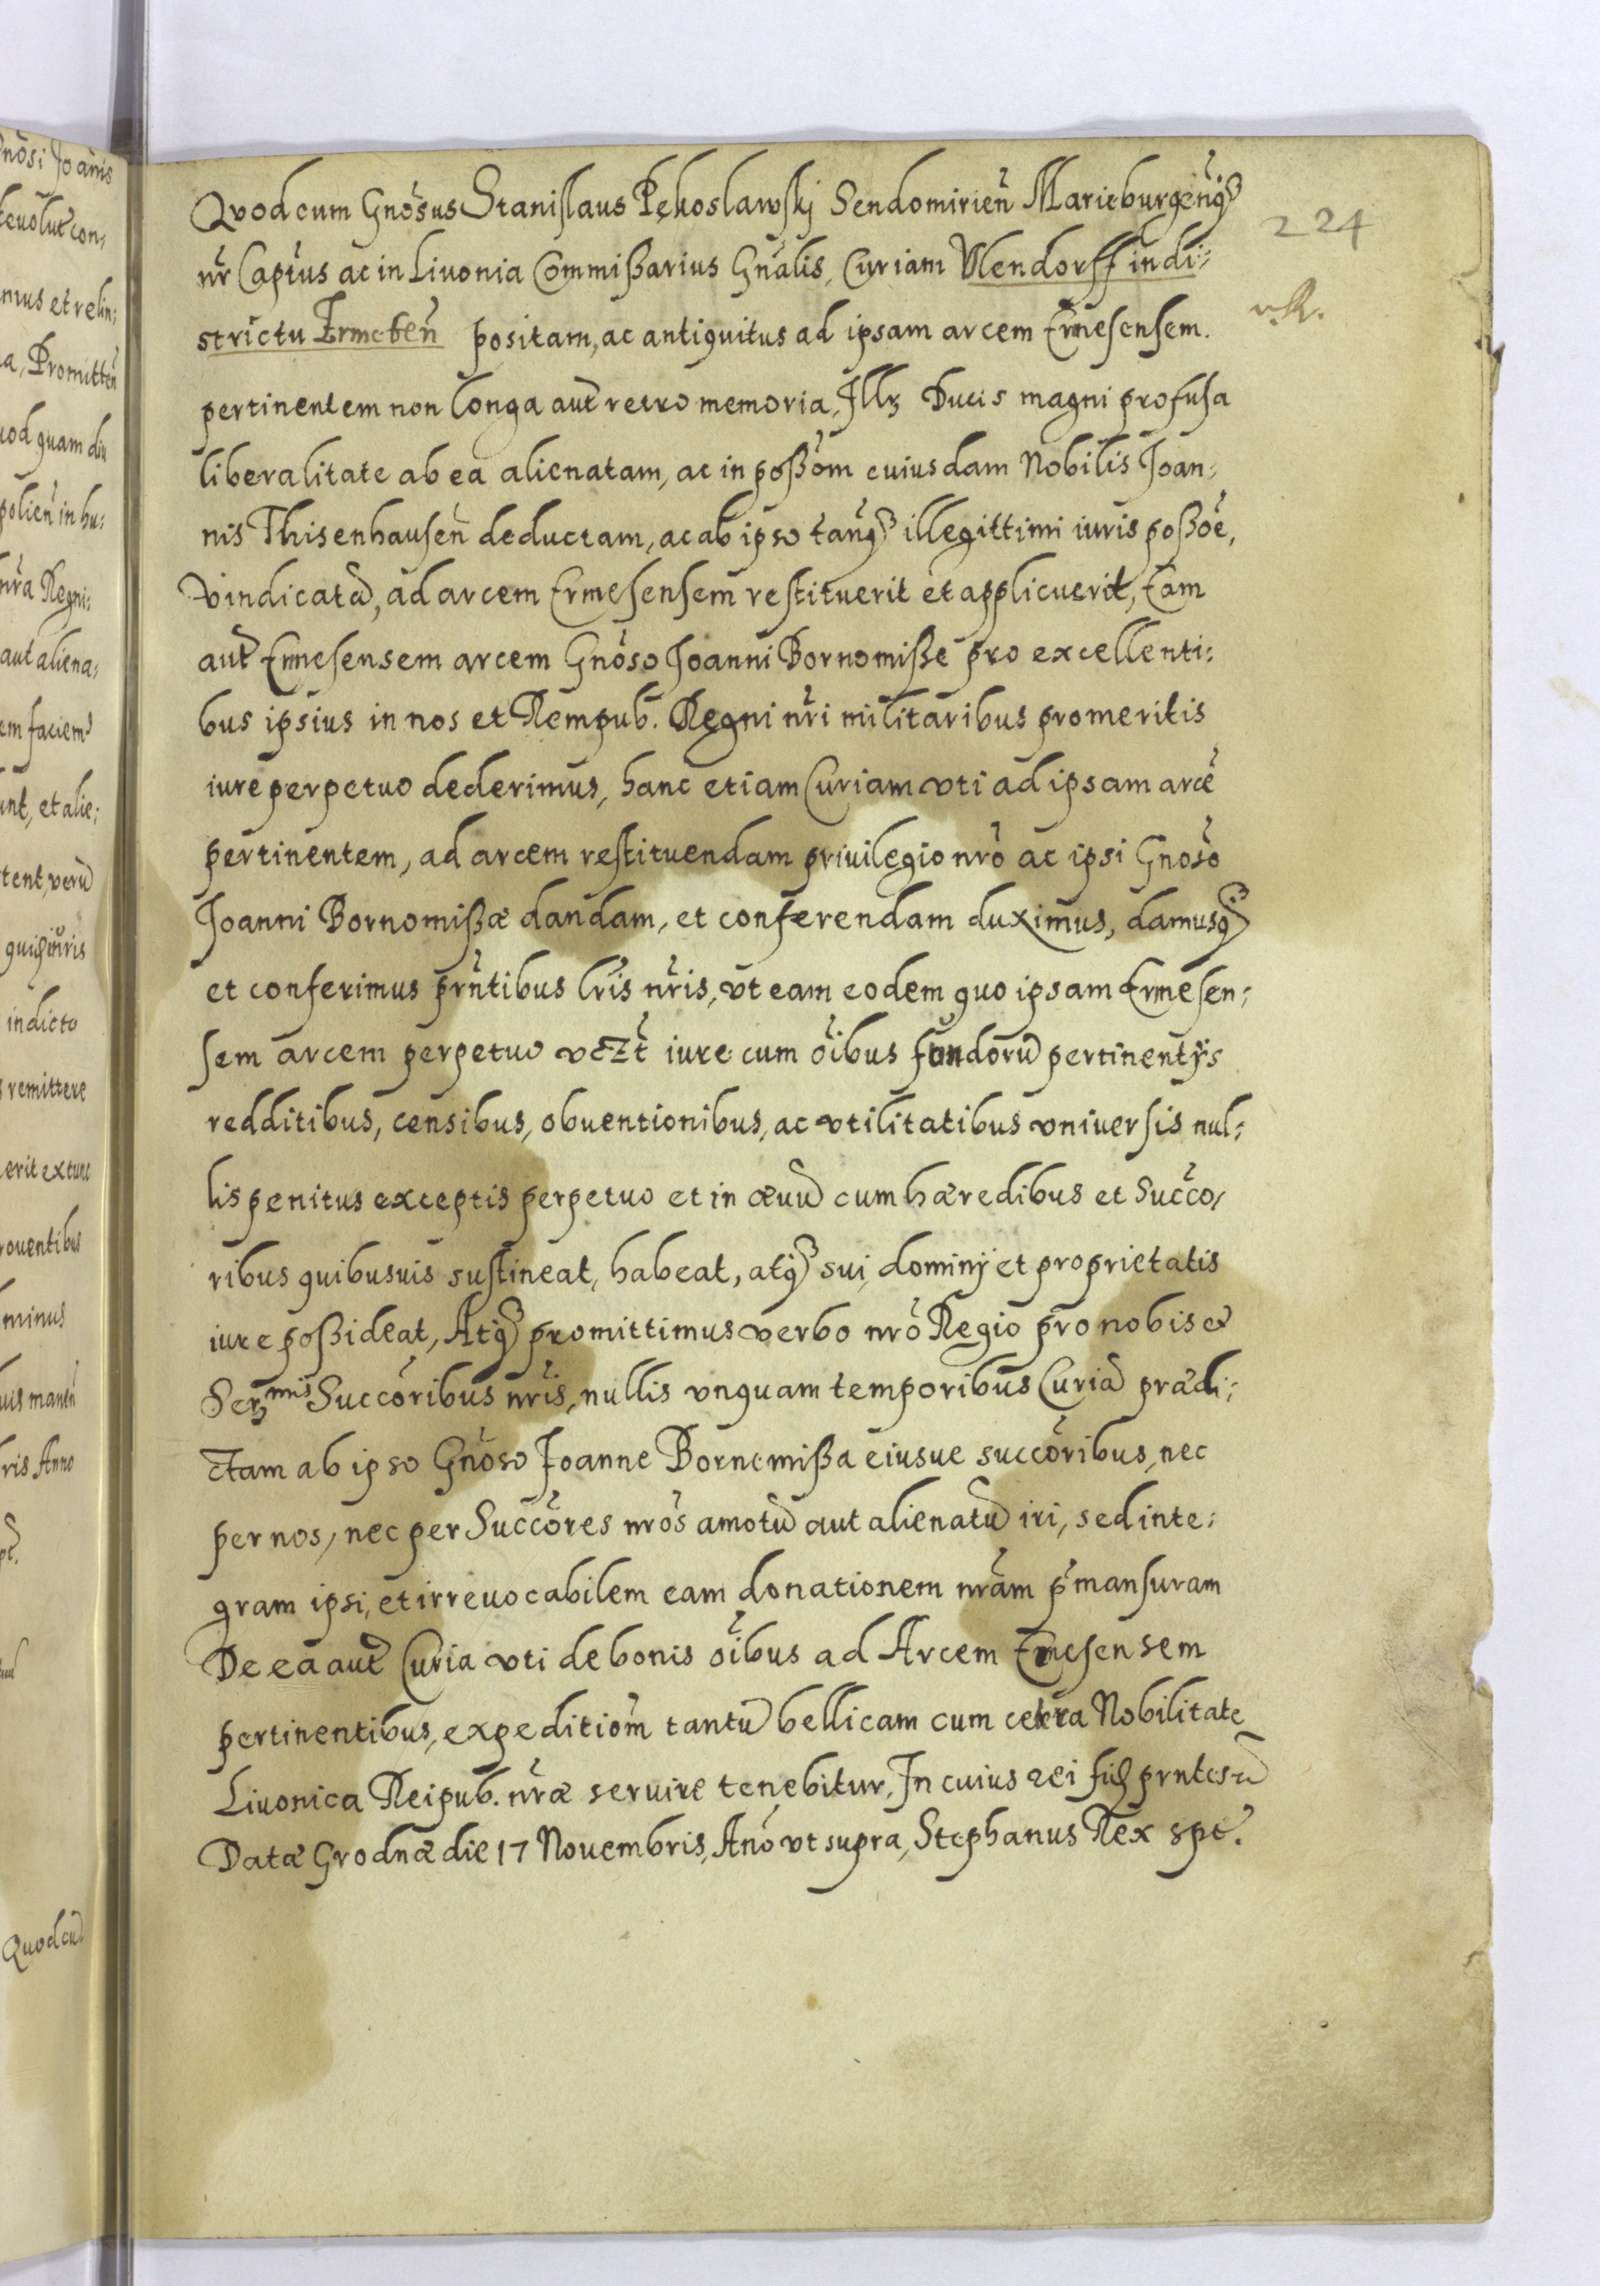 Quod cum Gnōsus Stanislaus Pękoslawskj Sendomirień Marieburgeńq₃
nr̄ Captus ac in Liuonia Commißarius Gnālis, Curiam Vlendorff in di⸗
strictu Ermeteń positam, ac antiquitus ad ipsam arcem Ermesensem.
pertinentem non longa aut̄ retro memoria, Illr₃ Ducis magni profusa
liberalitate ab ea alienatam, ac in poßōm cuiusdam Nobilis Joan⸗
nis Thisenhauseń deductam, ac ab ipso tanq₃ illegittimi iuris poßōe,
vindicatā, ad arcem Ermesensem restituerit et applicuerit, Eam
aut̄ Ermesensem arcem Gnōso Joanni Bornomiße pro excellenti⸗
bus ipsius in nos et Rempub. Regni nr̄i militaribus promeritis
iure perpetuo dederimus, hanc etiam Curiam vti ad ipsam arcē
pertinentem, ad arcem restituendam priuilegio nrō ac ipsi Gnosō
Joanni Bornomißæ dandam, et conferendam duximus, damusq₃
et conferimus prn̄tibus lrīs nrīs, vt eam eodem quo ipsam Ermesen⸗
sem arcem perpetuo vczt̄ iure cum oībus fundorū pertinentijs
redditibus, censibus, obuentionibus, ac vtilitatibus vniuersis nul⸗
lis penitus exceptis perpetuo et in æuū cum hæredibus et Succō⸗
ribus quibusuis sustineat, habeat, atq₃ sui, dominij et proprietatis
iure poßideat, Atq₃ promittimus verbo nrō Regio pro nobis et
Ser₃mis Succōribus nrīs, nullis vnquam temporibus Curiā prædi⸗
ctam ab ipso Gnōso Joanne Bornemißa eiusue succōribus, nec
per nos, nec per Succōres nrōs amotū aut alienatū iri, sed inte⸗
gram ipsi, et irreuocabilem eam donationem nrām p̄mansuram
De ea aut̄ Curia vti de bonis oībus ad Arcem Ermesensem
pertinentibus, expeditiōm tantū bellicam cum cetr̄a Nobilitate
Liuonica Reipub. nr̄æ seruire tenebitur, In cuius rei prntes
Datæ Grodnæ die 17 Nouembris, Anō vt supra, Stephanus Rex spt.
224